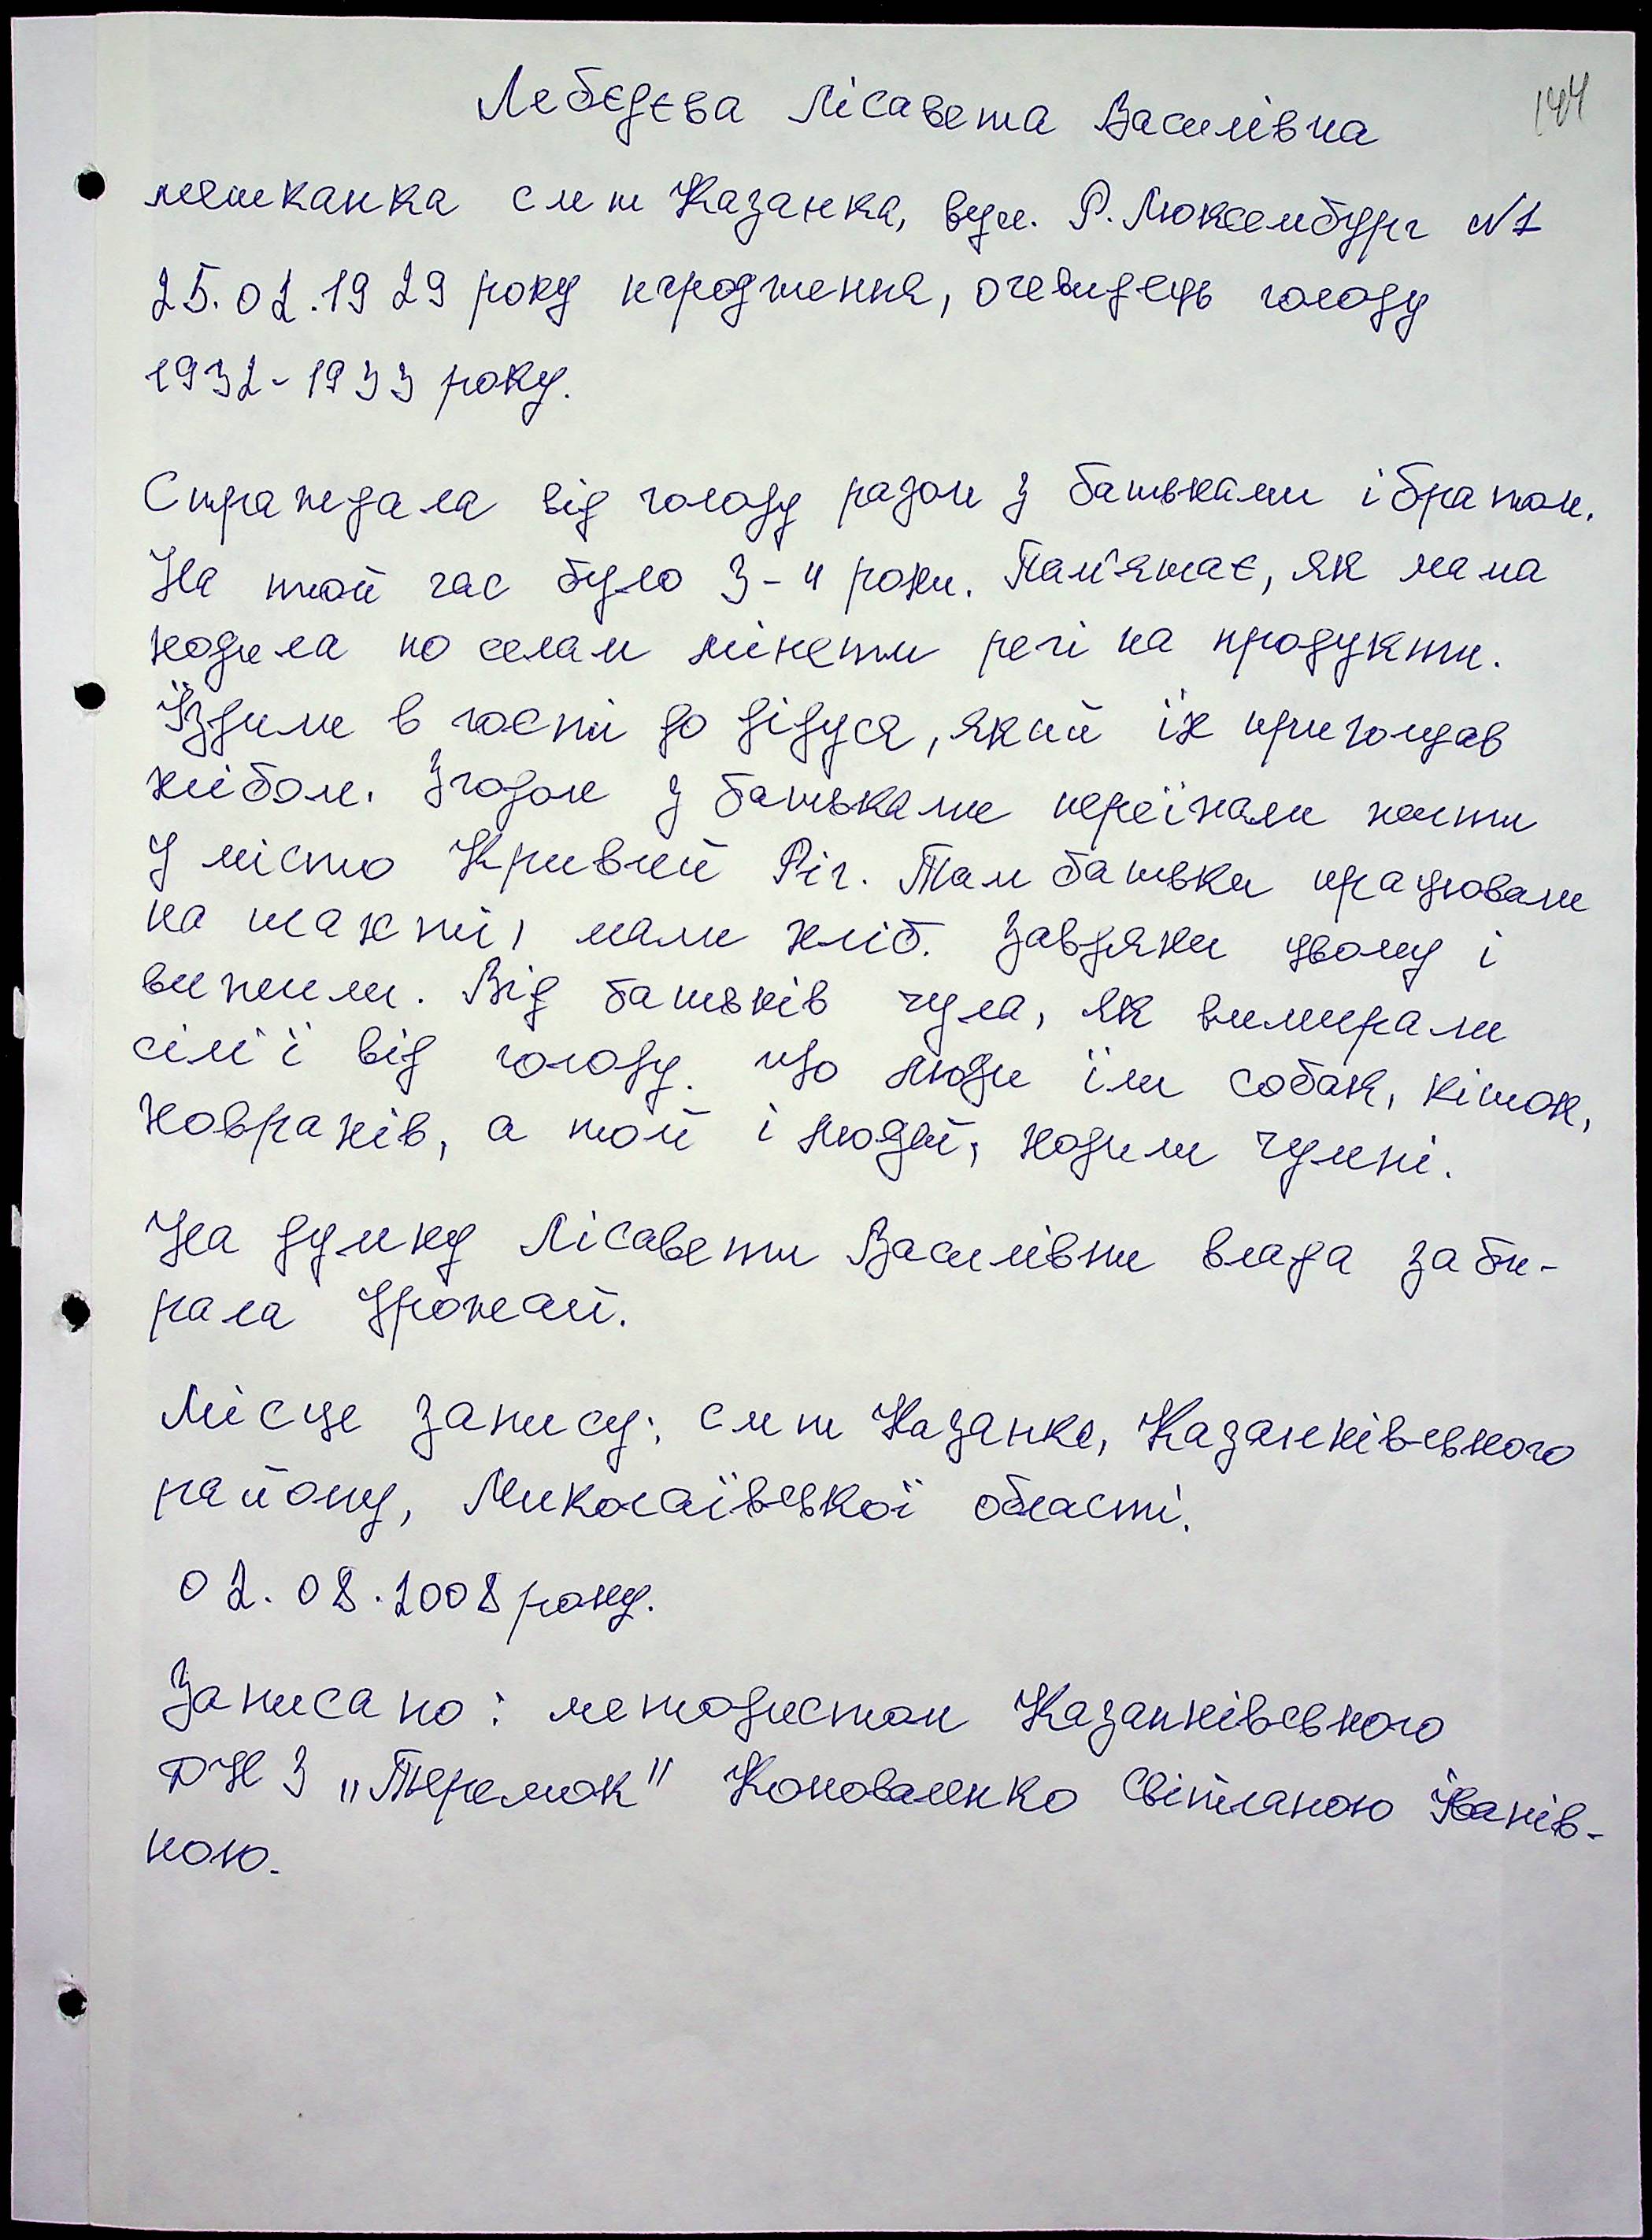 Лебєдєва Лісавета Василівна
144
мешканка смт Казанка, вул. Р. Люксембург №1
25.02.1929 року народження, очевидець голоду
1932-1933 року.
Страждала від голоду разом з батьками і братом.
На той час було 3-4 роки. Пам'ятає, як мама
ходила по селам міняти речі на продукти.
Їздили в гості до дідуся, який їх пригощав
хлібом. Згодом з батьками переїхали жити
у місто Кривий Ріг. Там батьки працювали
на шахті, мали хліб. Завдяки цьому і
вижили. Від батьків чула, як вимирали
сім'ї від голоду. Що люди їли собак, кішок,
ховрахів, а той і людей, ходили чумні.
На думку Лісавети Василівни влада заби-
рала урожай.
Місце запису: смт Казанка, Казанківського
району, Миколаївської області.
02.08.2008 року.
Записано: методистом Казанківського
ДНЗ "Теремок" Коноваленко Світланою Іванів-
ною.